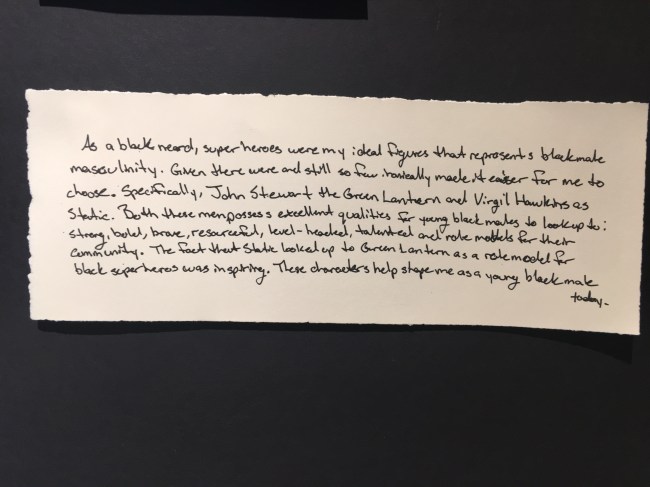 As a black neard, superheroes were my ideal figures that represents blackmale
masculinity. Given there were and still so few ironically made it easier for me to
choose. Specifically, John Stewart the Green Lantern and Virgil Hawkins as
Static. Both these men possess excellent qualities for young black males to look up to:
strong, bold, brave, resourceful, level-headed, talented and role models for their
community. The fact that Static looked up to Green Lantern as a role model for
black superheros was inspiring. These characters help shape me as a young black male
today.